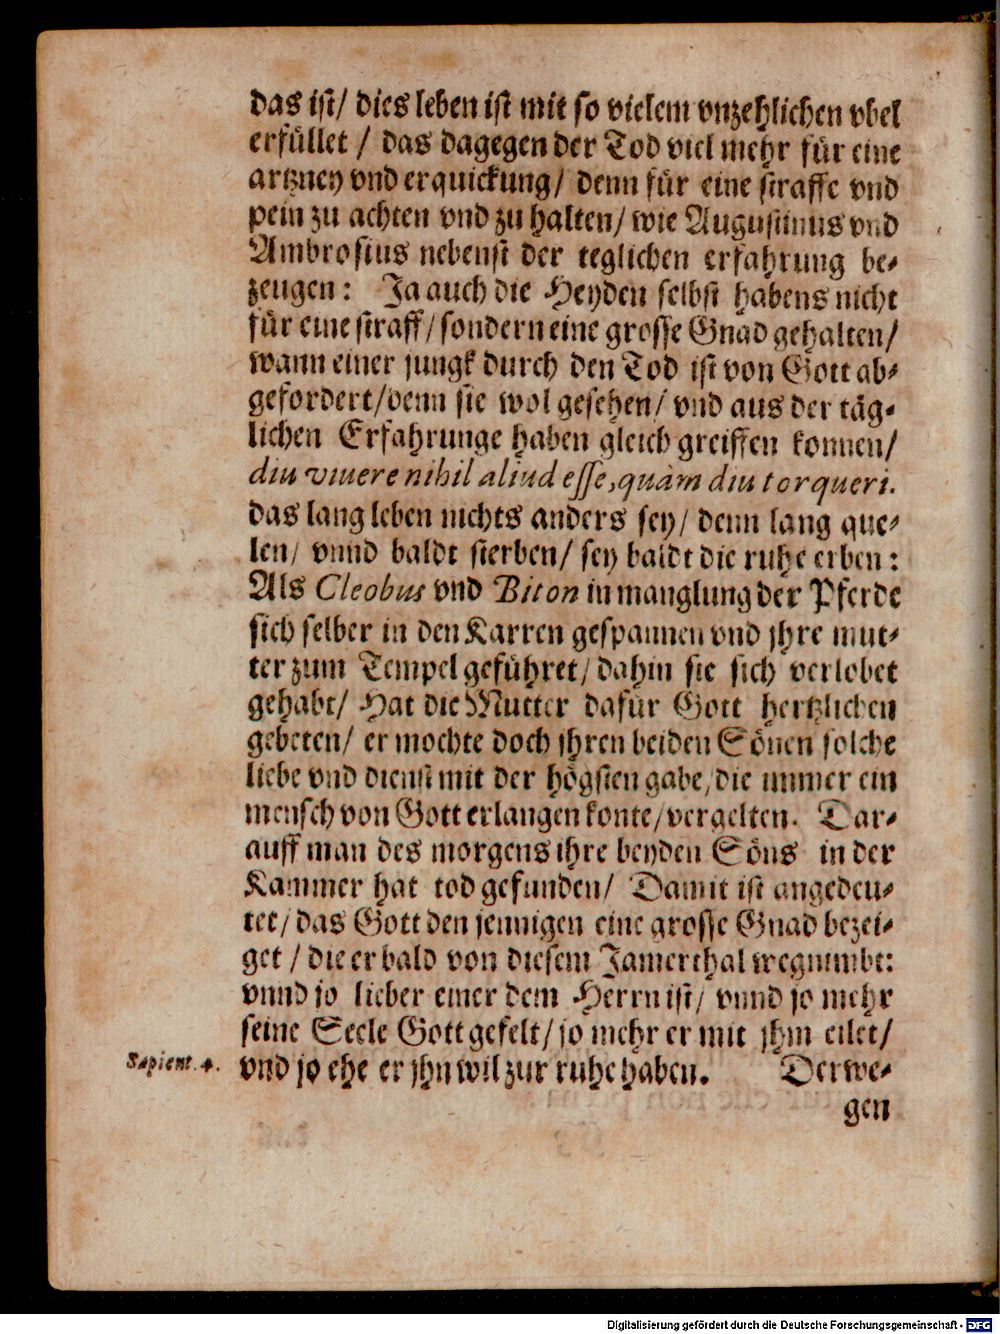 das ist/ dies leben ist mit so vielem vnzehlichen vbel
erfüllet / das dagegen der Tod viel mehr für eine
artzney vnd erquickung/ denn für eine straffe vnd
pein zu achten vnd zu halten/ wie Augustinus vnd
Ambrosius nebenst der teglichen erfahrung be-
zeugen: Ja auch die Heyden selbst habens nicht
für eine straff/ sondern eine grosse Gnad gehalten/
wann einer jungk durch den Tod ist von Gott ab-
gefordert/ denn sie wol gesehen/ vnd aus der täg-
lichen Erfahrunge haben gleich greiffen konnen/
diu viuere nihil aliud esse, quàm diu torqueri.
das lang leben nichts anders sey/ denn lang que-
len/ vnnd baldt sterben/ sey baldt die ruhe erben:
Als Cleobus vnd Biton in manglung der Pferde
sich selber in den Karren gespannen vnd jhre mut-
ter zum Tempel geführet/ dahin sie sich verlobet
gehabt/ Hat die Mutter dafür Gott hertzlichen
gebeten/ er mochte doch jhren beiden Sönen solche
liebe vnd dienst mit der högsten gabe/ die immer ein
mensch von Gott erlangen konte/ vergelten. Dar-
auff man des morgens ihre beyden Söns in der
Kammer hat tod gefunden/ Damit ist angedeu-
tet/ das Gott den jennigen eine grosse Gnad bezei-
get / die er bald von diesem Jamerthal wegnimbt:
vnnd jo lieber einer dem Herrn ist/ vnnd jo mehr
seine Seele Gott gefelt/ jo mehr er mit jhm eilet/
Sapient. 4. vnd jo ehe er jhn wil zur ruhe haben. Derwe-
gen
Digitalisierung gefördert durch die Deutsche Forschungsgemeinschaft - DFG